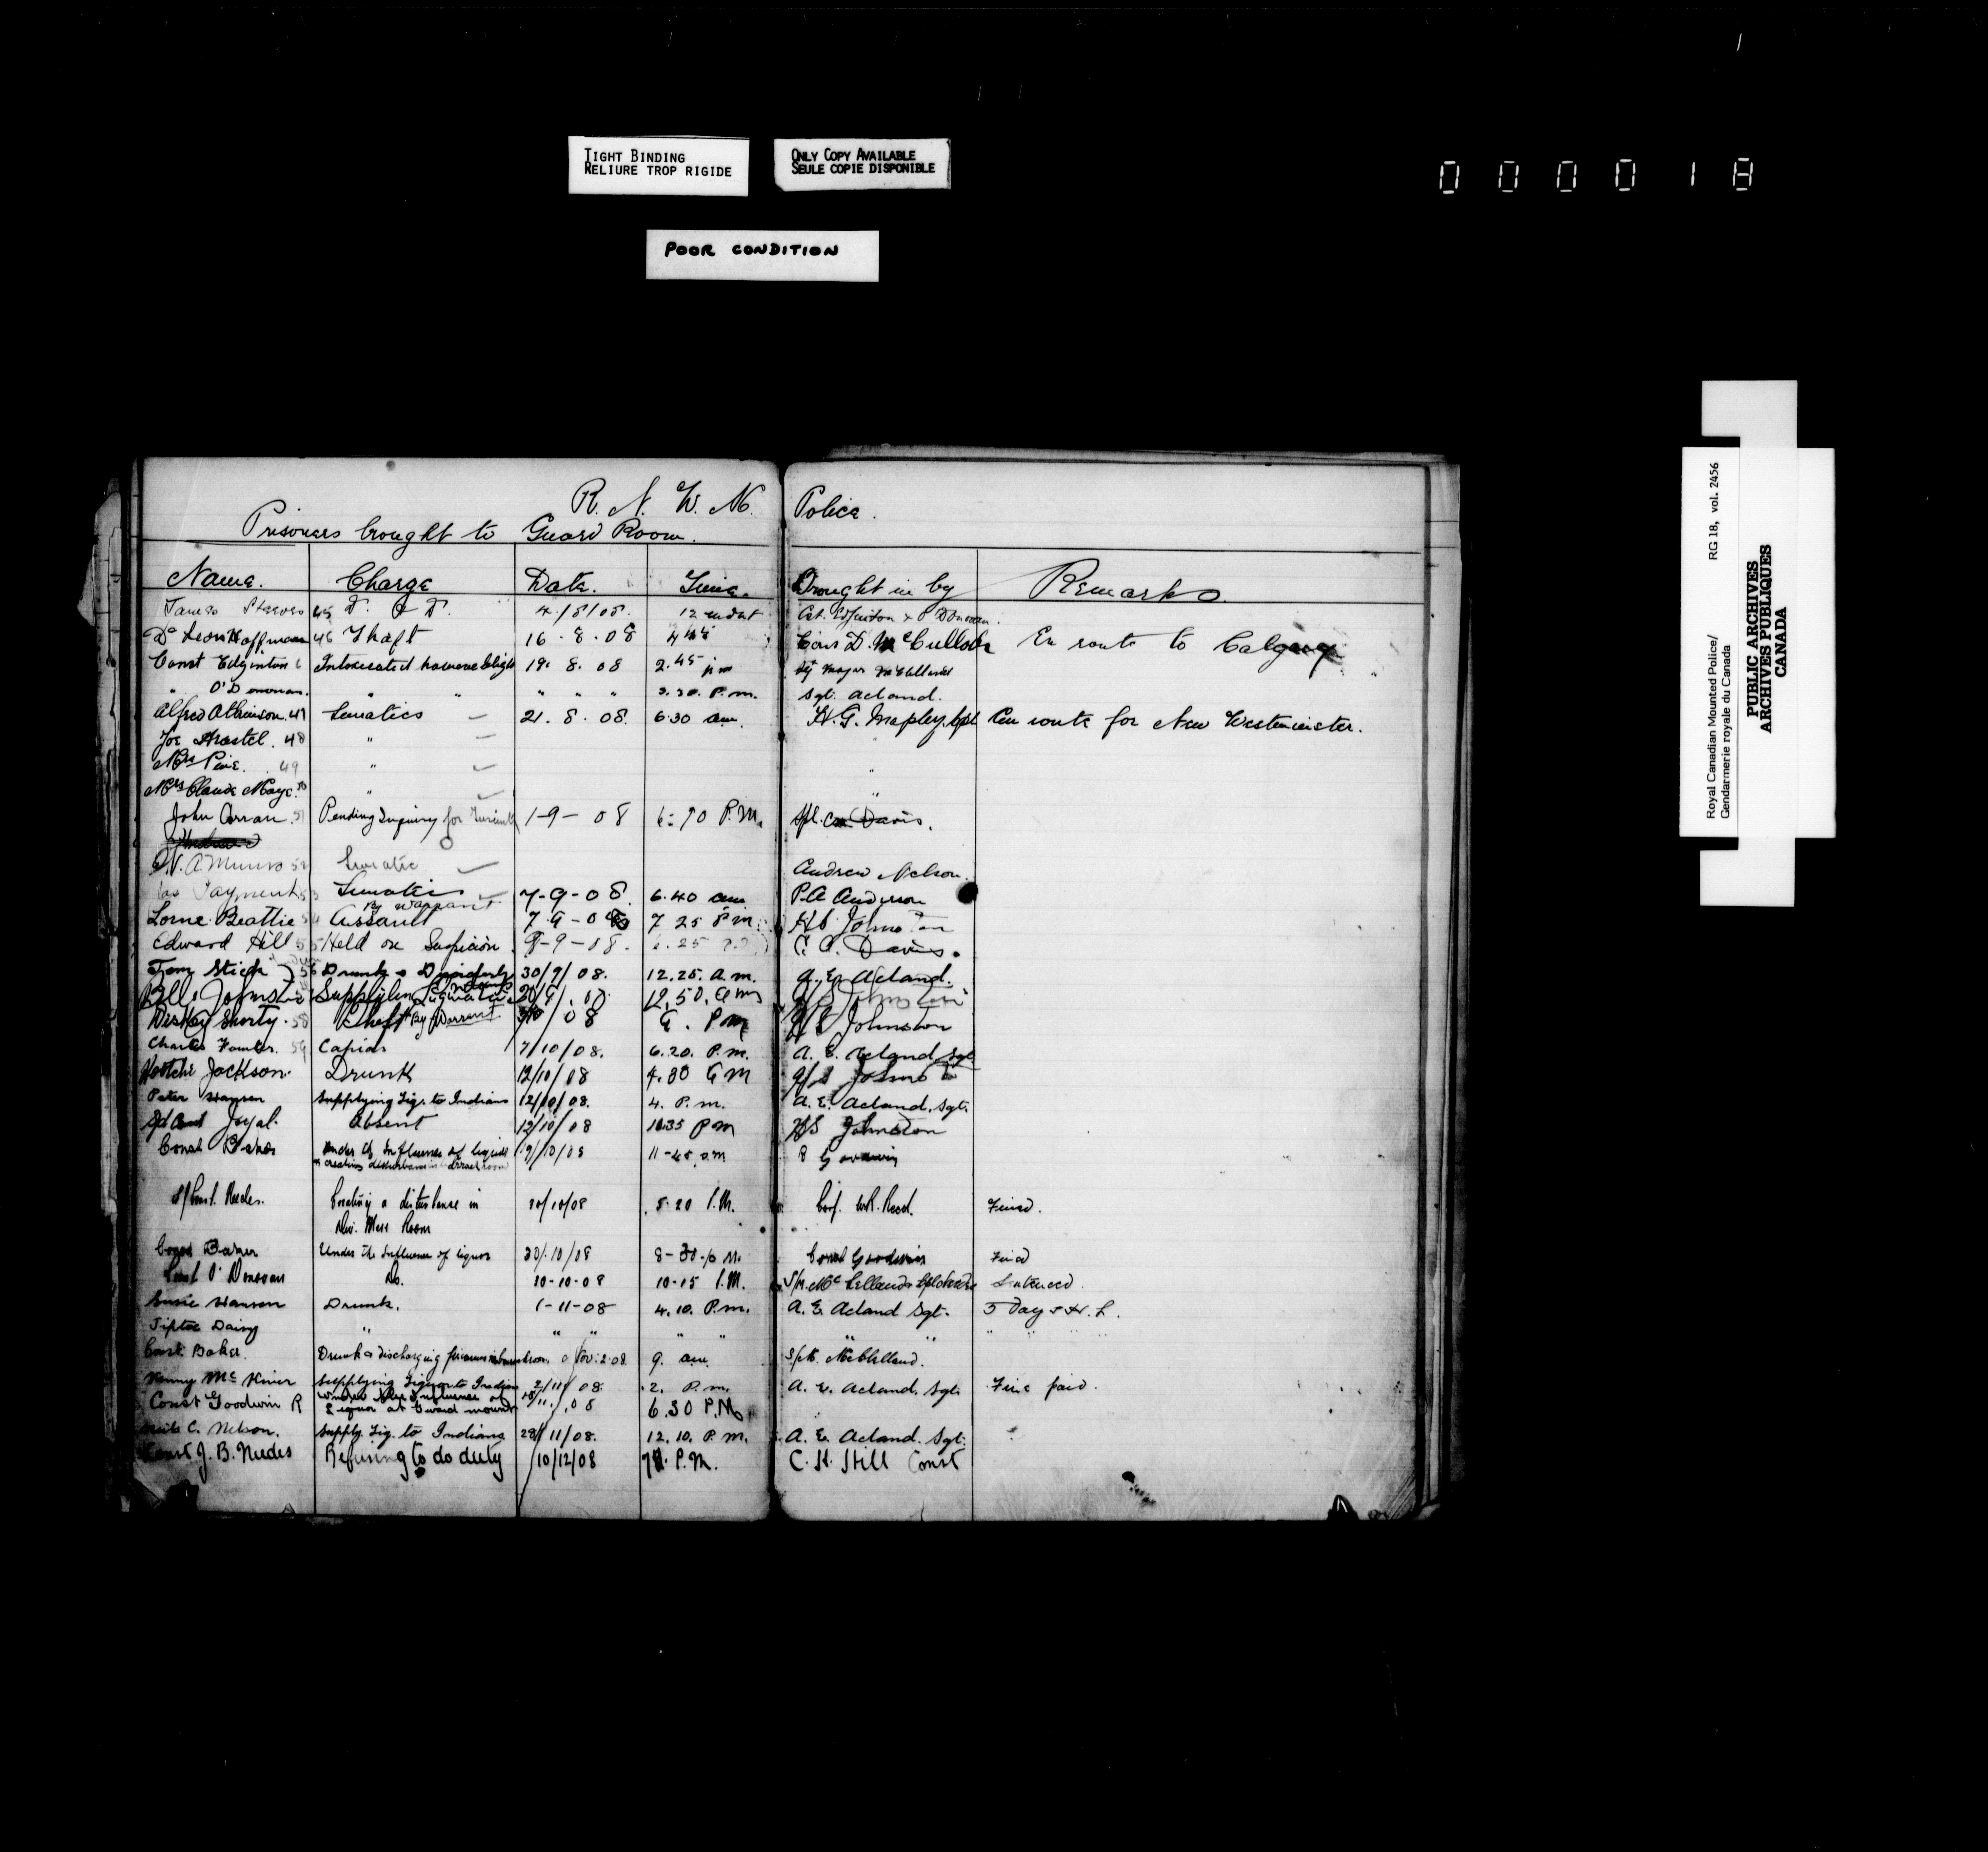 TIGHT BINDING
RELIURE TROP RIGIDE
ONLY COPY AVAILABLE
SEULE COPIE DISPONIBLE
POOR CONDITION
000018
R. N. W. M. Police.
Prisoners brought to Guard Room.
Name. Charge Date. Time. Brought in by Remarks.
James 45 D. & D. 4/8/08. 12
Dr Leon Hoffman 46 Theft 16-8-08 Cons D. McCulloch En route to Calgary
Const Edginton Intoxicated 19. 8. 08 2.45 pm Sgt Major McClelland
" O'Donovan. " " " " " P.m. Sgt. Acland.
Alfred Atkinson. 47 Lunatics 21. 8. 08. 6.30 am. H. G. Mapley. En route for New Westminster.
Joe 48 "
Mrs 49 " "
Mrs Claude " "
John Curran. 51 Pending Inquiry for 1-9-08 P.M. Spl. Davis.
A. Munro 52 Lunatic Andrew Nelson.
Payment 53 Lunatic 7-9-08. 6.40 am P A Anderson
By Warrant
Lorne Beattie 54 Assault 7-9-08 7 25 P m. Johnston
Edward Hill 55 Held on Suspicion. 8-9-08. 25 Davis.
Tom Stick 56 Drunk & Disorderly 30/9/08. 12.25. A.m. A. E. Acland.
Johnston 12.50. am Johnston
Shorty. 58 Theft By Warrant 08 9. P m Johnston
Charles 59 Capias 7/10/08. 6.20. P.m. A. E. Acland. Sgt.
Jackson. Drunk 12/10/08 4.30 Johnston
Peter Hansen Supplying Liq. to Indians 12/10/08. 4. P.m. A. E. Acland. Sgt.
Joyal. Absent 12/10/08 11.35 P m HS Johnston
Const Baker Under the Influence of liquor /10/08 11-45 p.m Goodwin
& creating disturbance in Barrack room
S/Const. Needes. Creating a disturbance in 20/10/08 8.20 P.M. Corp. Reed. Fined.
Div. Mess Room
Const Baker Under the Influence of liquor 30/10/08 8-30 p m. Const Goodwin Fined
Const O'Donovan Do. 10-10-08 10-15 P.M. S/M. McClelland Sentenced.
Susie Hansen Drunk. 1-11-08 4.10. P.m. A. E. Acland Sgt. 5 Days H. L.
Tiptoe Daisy " " " " " " " " " "
Const. Baker. Drunk & discharging Nov: 2. 08 9. am. S/M. McClelland.
Kenny Supplying Liquor to Indians 2/11/08. 2. P.m. A. E. Acland. Sgt. Fine paid.
Const Goodwin R Under the Influence of /11/08 6.30 P.M.
Liquor at Guard mount
C. Nelson. Supply. Liq. to Indians 28/11/08. 12.10. P.m. A. E. Acland. Sgt. "
Const J. B. Needes Refusing to do duty 10/12/08 P.M. C. H. Hill Const
Royal Canadian Mounted Police/
Gendarmerie royale du Canada
RG 18, vol. 2456
PUBLIC ARCHIVES
ARCHIVES PUBLIQUES
CANADA